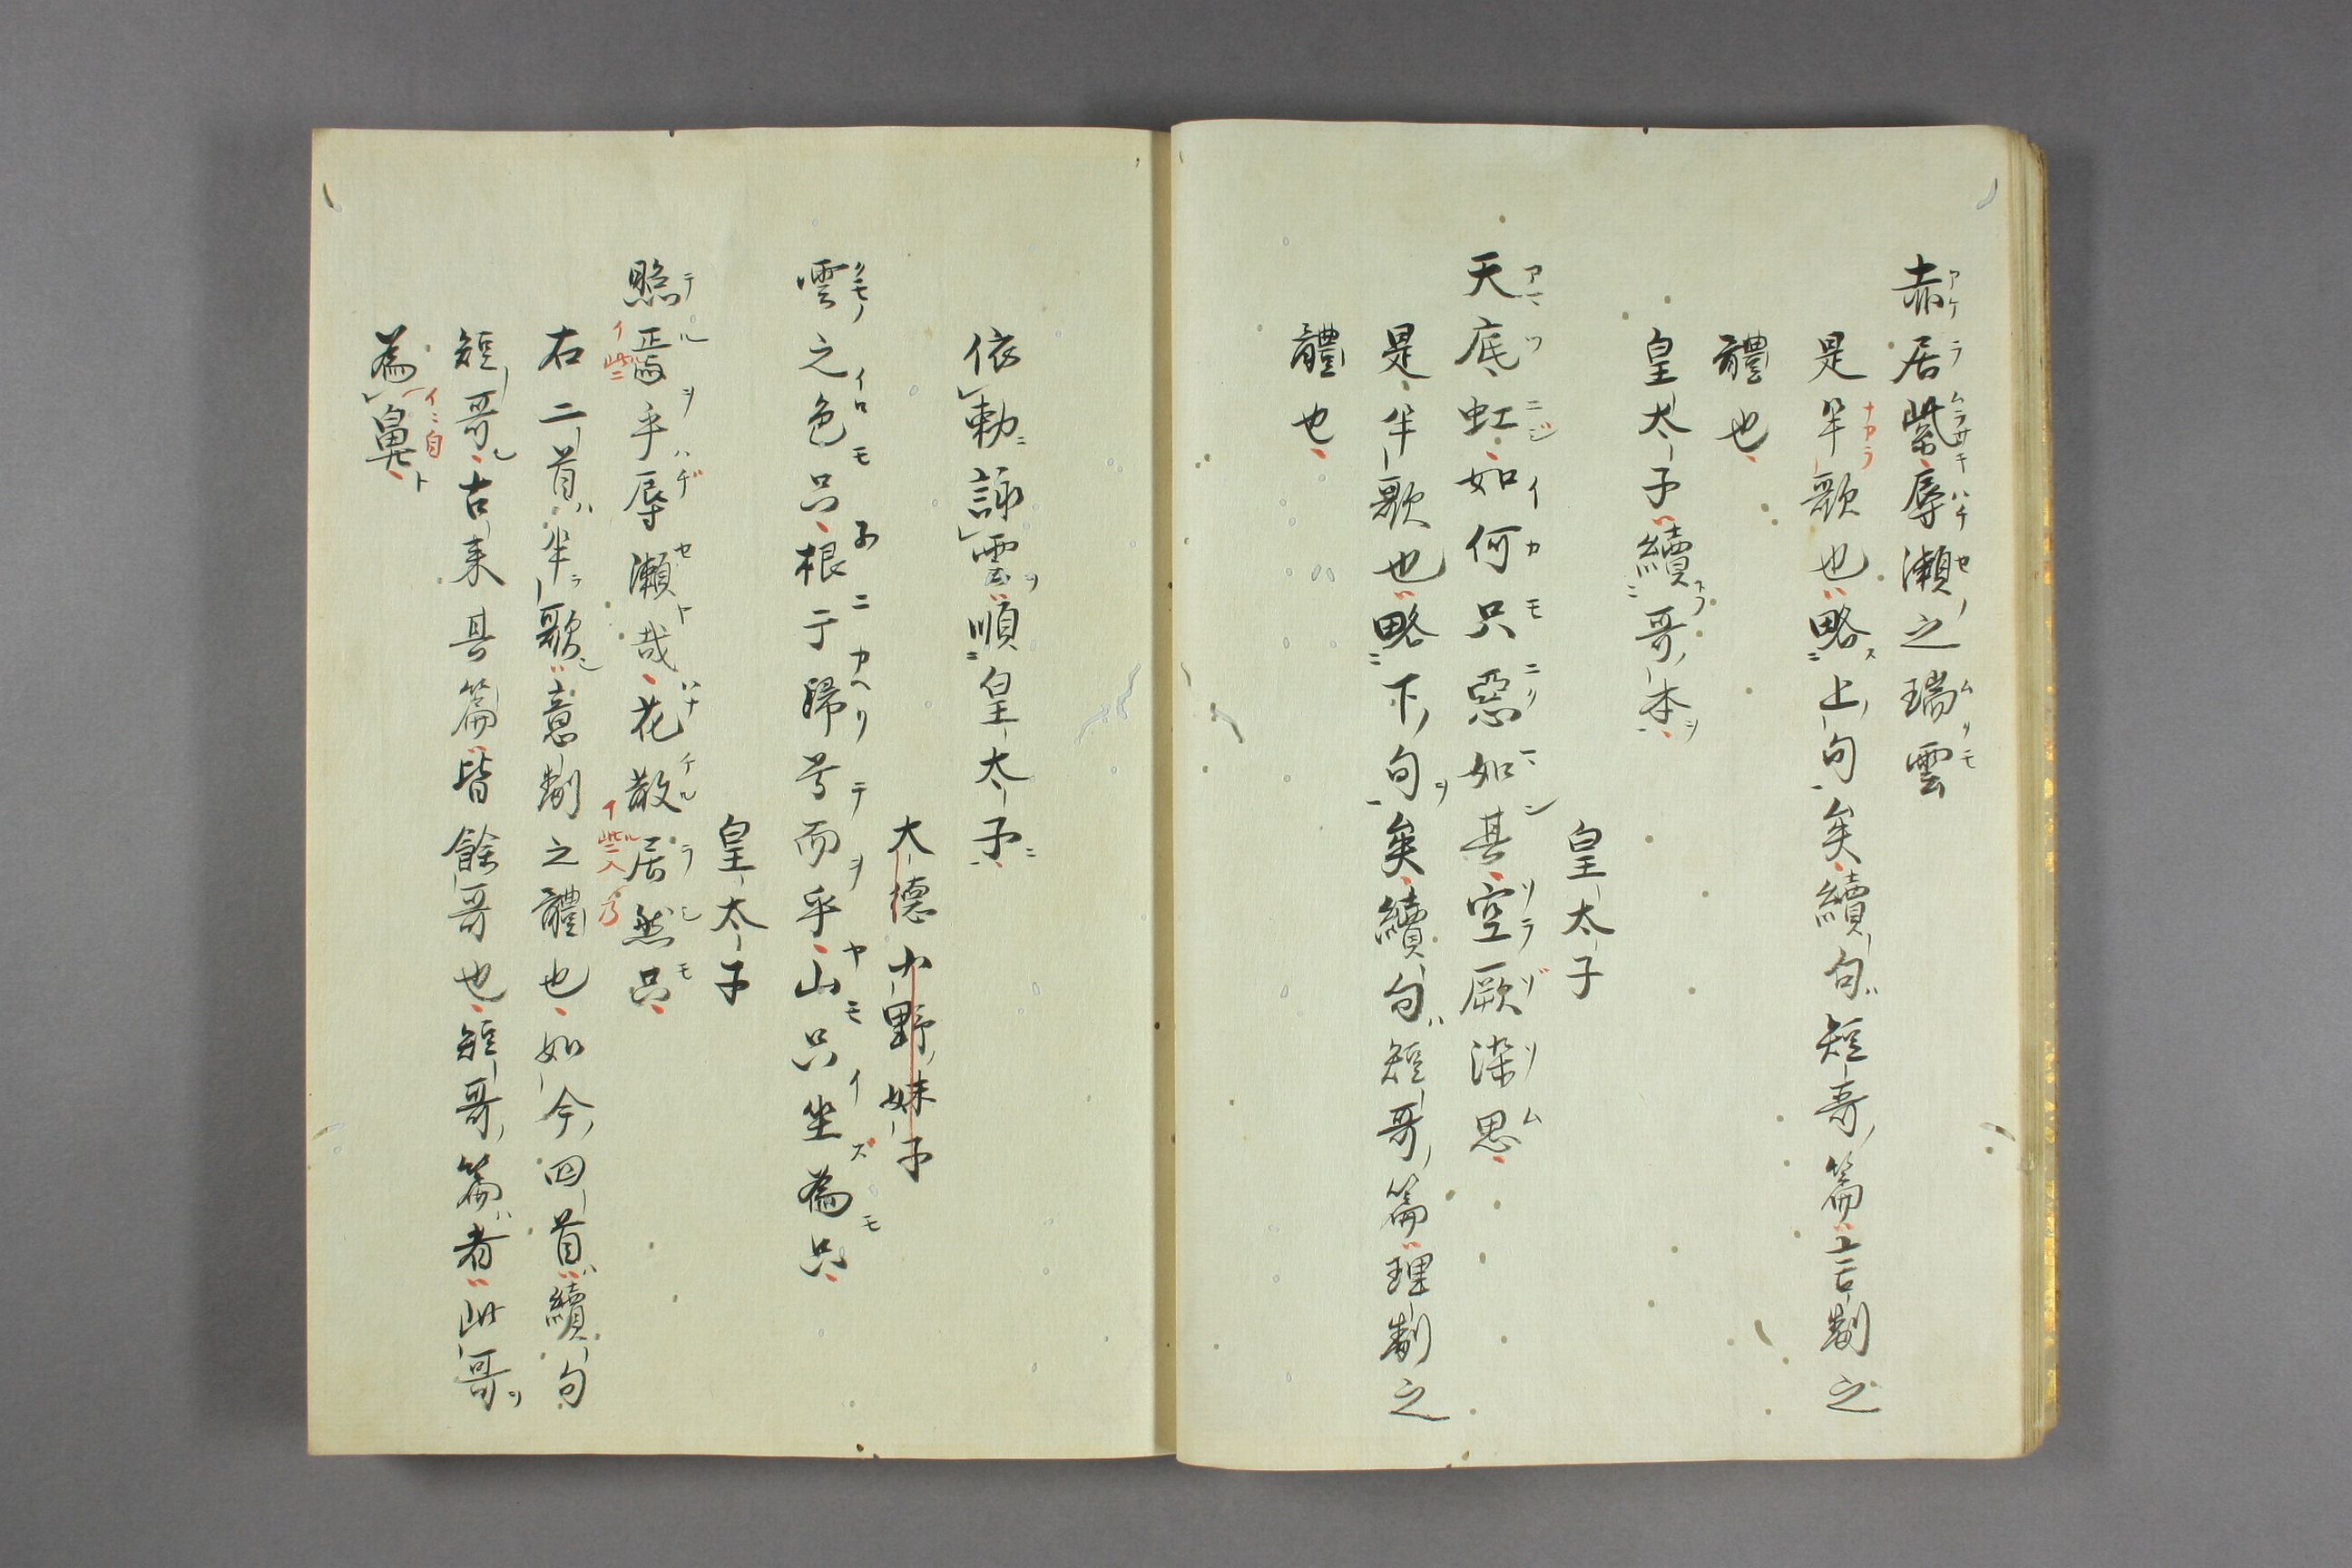 赤居紫辱瀬之瑞雲
是半歌也略上句矣續句短哥篇言制之
體也
皇太子續哥本
皇太子
天底虹如何只惡如其空厥染思
是半歌也略下句矣續句短哥篇理制之
體也
依勅詠雲順皇太子
大德小野妹子
雲之色只根于歸号而乎山只坐為只
皇太子
照乎辱瀬哉花散居然只
右二首半歌意制之體也如今四首續句
短哥古来其篇皆餘哥也短哥篇者此哥
為鼻